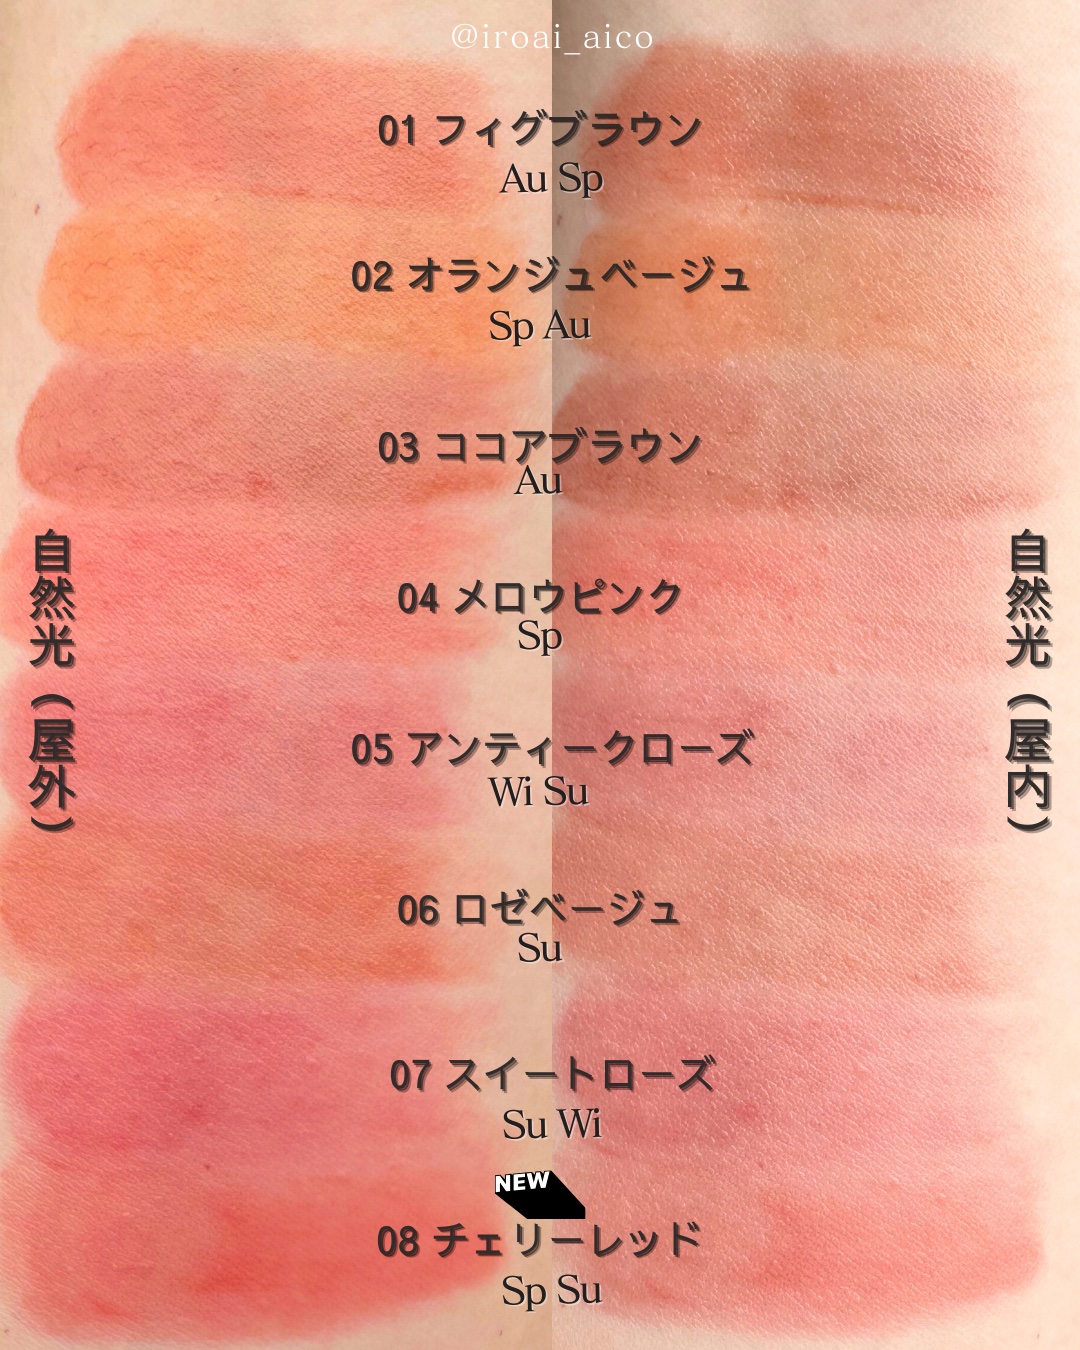 @iroai_aico
01 フィグブラウン
Au Sp
02 オランジュベージュ
Sp Au
03 ココアブラウン
Au
04 メロウピンク
Sp
自然光(屋外)
自然光(屋内)
05 アンティークローズ
Wi Su
06 ロゼベージュ
Su
07 スイートローズ
Su Wi
NEW
08 チェリーレッド
Sp Su